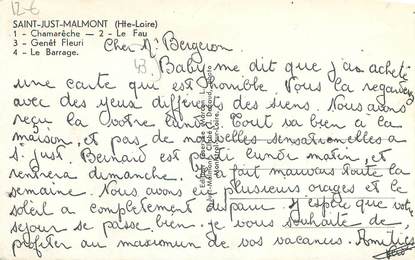 12-6
SAINT-JUST-MALMONT (Hte-Loire)
1 - Chamarèche — 2 - Le Fau
3 - Genêt Fleuri
4 - Le Barrage.
Cher Mr Bergeron
43. Baby me dit que j'ai acheté
une carte qui est horrible. Nous la regardons
avec des yeux différents des siens. Nous avons
reçu la votre lundi. Tout va bien à la
maison, et pas de nouvelles sensationnelles à
St Just. Bernard est parti lundi matin, et
rentrera dimanche. Il fait mauvais toute la
semaine. Nous avons eu plusieurs orages et le
soleil a complètement disparu. J'espère que votre
séjour se passe bien. je vous souhaite de
profiter au maximum de vos vacances. Amitiés